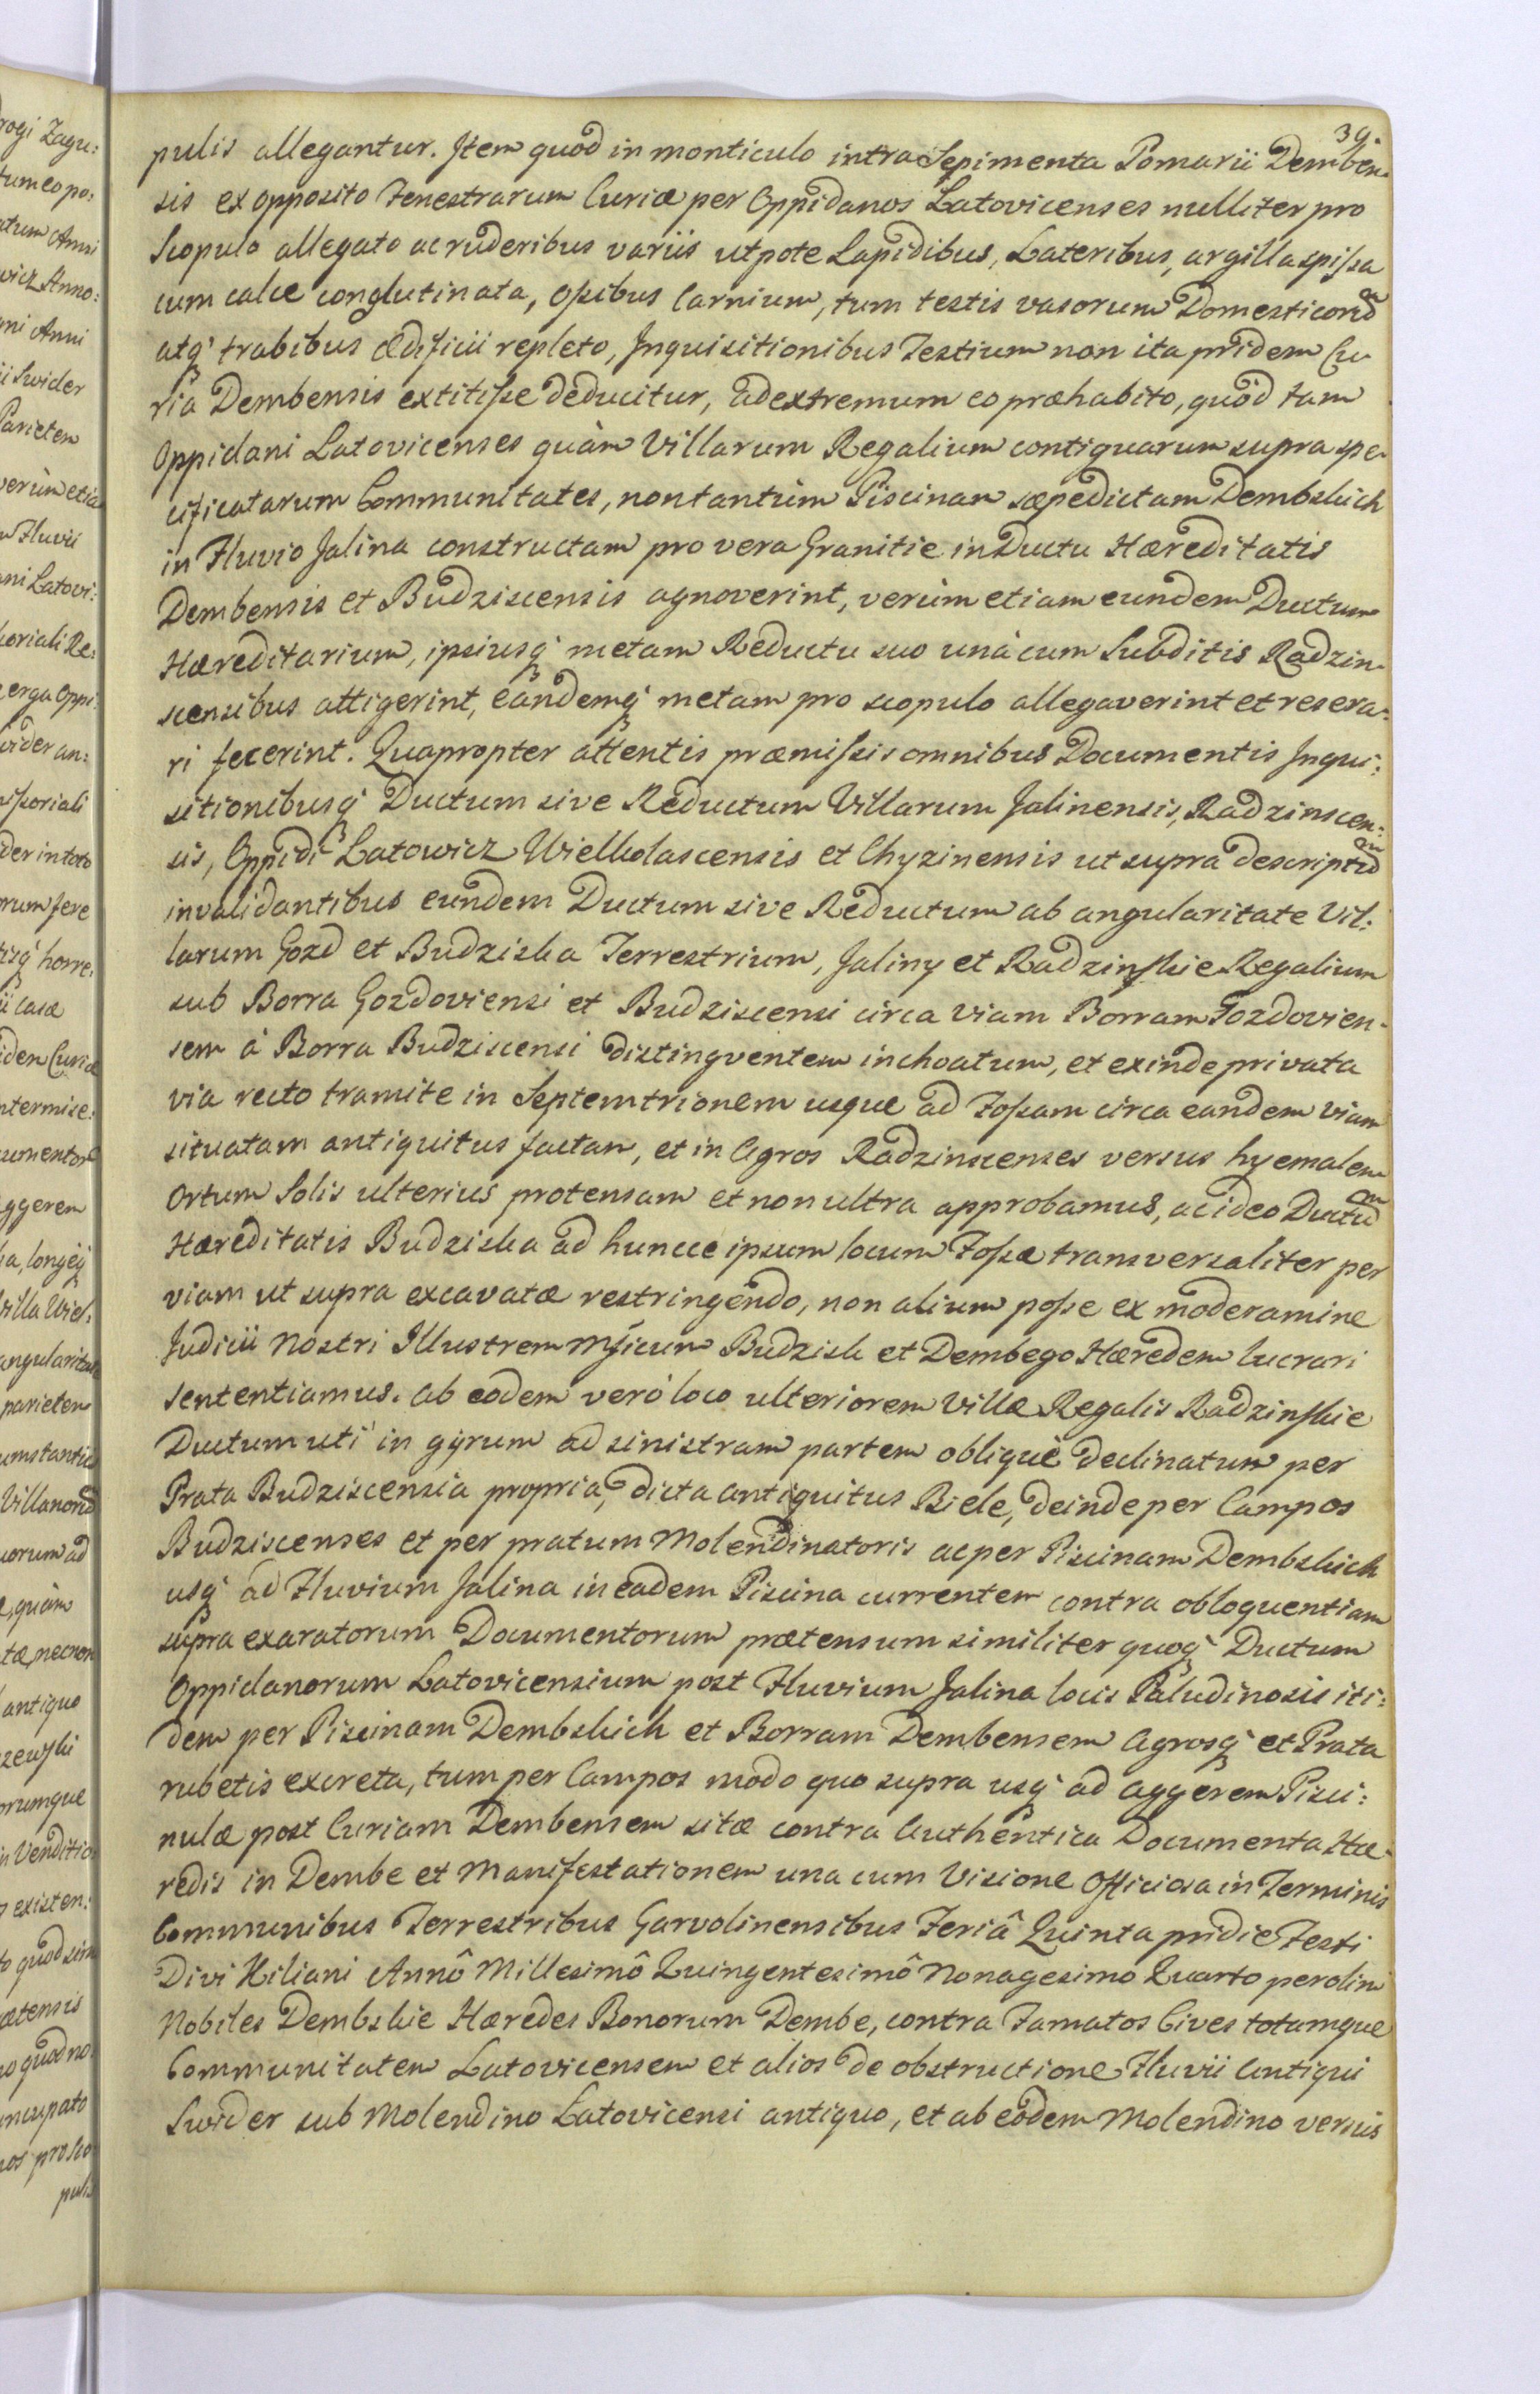 39.
pulis allegantur. Item quod in monticulo intra Sepimenta Pomarii Demben-
sis ex opposito Fenestrarum Curiæ per Oppidanos Latovicenses nulliter pro
Scopulo allegato ac ruderibus variis utpote Lapidibus, Lateribus, argilla spissa
cum calce conglutinata, Ossibus Carnium, tum testis vasorum Domesticorū
atq' trabibus ædificii repleto, Inquisitionibus Testium non ita pridem Cu-
ria Dembensis extitisse deducitur, ad extremum eo præhabito, quôd tam
Oppidani Latovicenses quàm Villarum Regalium contiguarum supra spe-
cificatarum Communitates, non tantùm Piscinam sæpedictam Dembskich
in Fluvio Jalina constructam pro vera Granitie in Ductu Hæreditatis
Dembensis et Budziscensis agnoverint, verùm etiam eundem Ductum
Hæreditarium, ipsiusq' metam Reductu suo unà cum Subditis Radzin-
scensibus attigerint, eandemq' metam pro scopulo allegaverint et resera-
ri fecerint. Quapropter attentis præmissis omnibus Documentis Inqui:
sitionibusq' Ductum sive Reductum Villarum Jalinensis, Radzinscen:
sis, Oppidi Latowicz Wielkolascensis et Chyzinensis ut supra descriptū
invalidantibus eundem Ductum sive Reductum ab angularitate Vil:
larum Gozd et Budziska Terrestrium, Jaliny et Radzinskie Regalium
sub Borra Gozdoviensi et Budziscensi circa viam Borram Gozdovien-
sem à Borra Budziscensi distingventem inchoatum, et exinde privata
via recto tramite in Septemtrionem usque ad Fossam circa eandem viam
situatam antiquitus factam, et in Agros Radzinscenses versus hyemalem
Ortum Solis ulterius protensam et non ultra approbamus, ac ideo Ductū
Hæreditatis Budziska ad huncce ipsum locum Fossæ transversaliter per
viam ut supra excavatæ restringendo, non alium posse ex moderamine
Judicii Nostri Illustrem Mgficum Budzisk et Dembego Hæredem lucrari
sententiamus. Ab eodem verò loco ulteriorem Villæ Regalis Radzinskie
Ductum uti in gyrum ad sinistram partem obliquè declinatum per
Prata Budziscensia propria, dicta antiquitus Biele, deinde per Campos
Budziscenses et per pratum Molendinatoris ac per Piscinam Dembskich
usq' ad Fluvium Jalina in eadem Piscina currentem contra obloquentiam
supra exaratorum Documentorum prætensum similiter quoq' Ductum
Oppidanorum Latovicensium post Fluvium Jalina locis Paludinosis iti:
dem per Piscinam Dembskich et Borram Dembensem Agrosq' et Prata
rubetis excreta, tum per Campos modo quo supra usq' ad aggerem Pisci:
nulæ post Curiam Dembensem sitæ contra Authentica Documenta Hæ-
redis in Dembe et Manifestationem una cum Visione Officiosa in Terminis
Communibus Terrestribus Garvolinensibus Feriâ Quinta pridie Festi
Divi Kiliani Annô Millesimô Quingentesimô Nonagesimo Quarto per olim
Nobiles Dembskie Hæredes Bonorum Dembe, contra Famatos Cives totamque
Communitatem Latovicensem et alios de obstructione Fluvii Antiqui
Swider sub Molendino Latovicensi antiquo, et ab eôdem Molendino versus